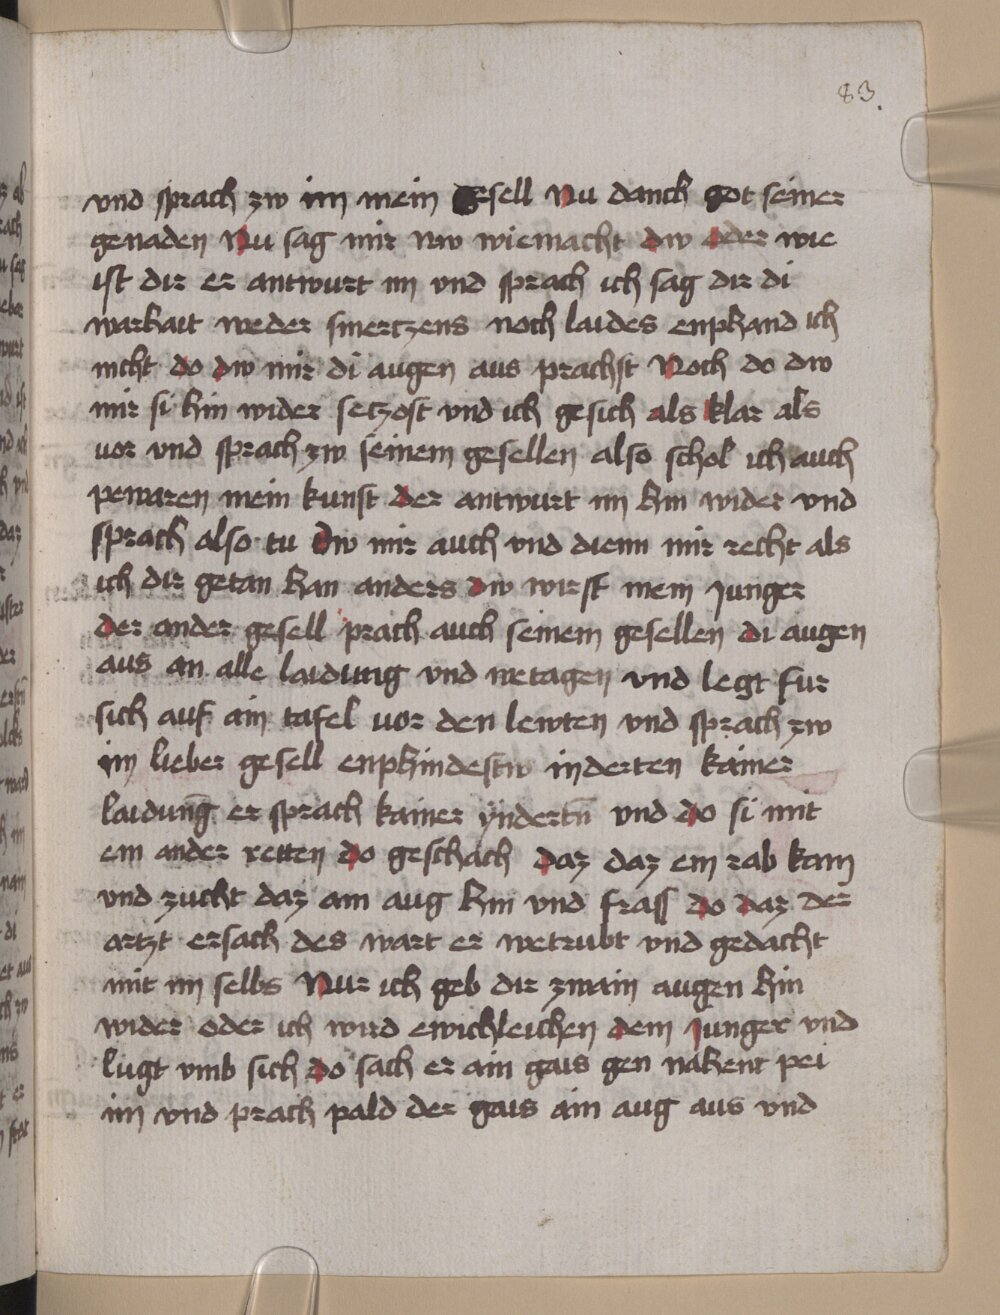 83.
vnd sprach zw im mein gesell Nu danck got seiner
genaden Nu sag mir nw wiemacht dw oder wie
ist dir er antwurt im vnd sprach ich sag dir di
warhait weder smertzens noch laides enphand ich
nicht do dw mir di augen aus prachst Noch do dw
mir si hin wider setzost vnd ich gesich als klar als
vor vnd sprach zw seinem gesellen also schol ich auch
pewaren mein kunst der antwurt im hin wider vnd
sprach also tu dw mir auch vnd dienn mir recht als
ich dir getan han anders dw wirst mein Junger
der ander gesell prach auch seinem gesellen di augen
aus an alle laidung vnd wetagen vnd legt fur
sich auf ain tafel vor den lewten vnd sprach zw
im lieber gesell enphindestw inderten kainer
laidung er sprach kainer yndertn̄ vnd do si mit
ein ander retten do geschach daz daz ein rab kam
vnd zucht daz ain aug hin vnd frass do daz der
artzt ersach des wart er wetrubt vnd gedacht
mit im selbs Nur ich geb dir zwain augen hin
wider oder ich wird ewichleichen dem Junger vnd
lugt vmb sich do sach er ain gais gen nahent pei
im vnd prach pald der gais ain aug aus vnd